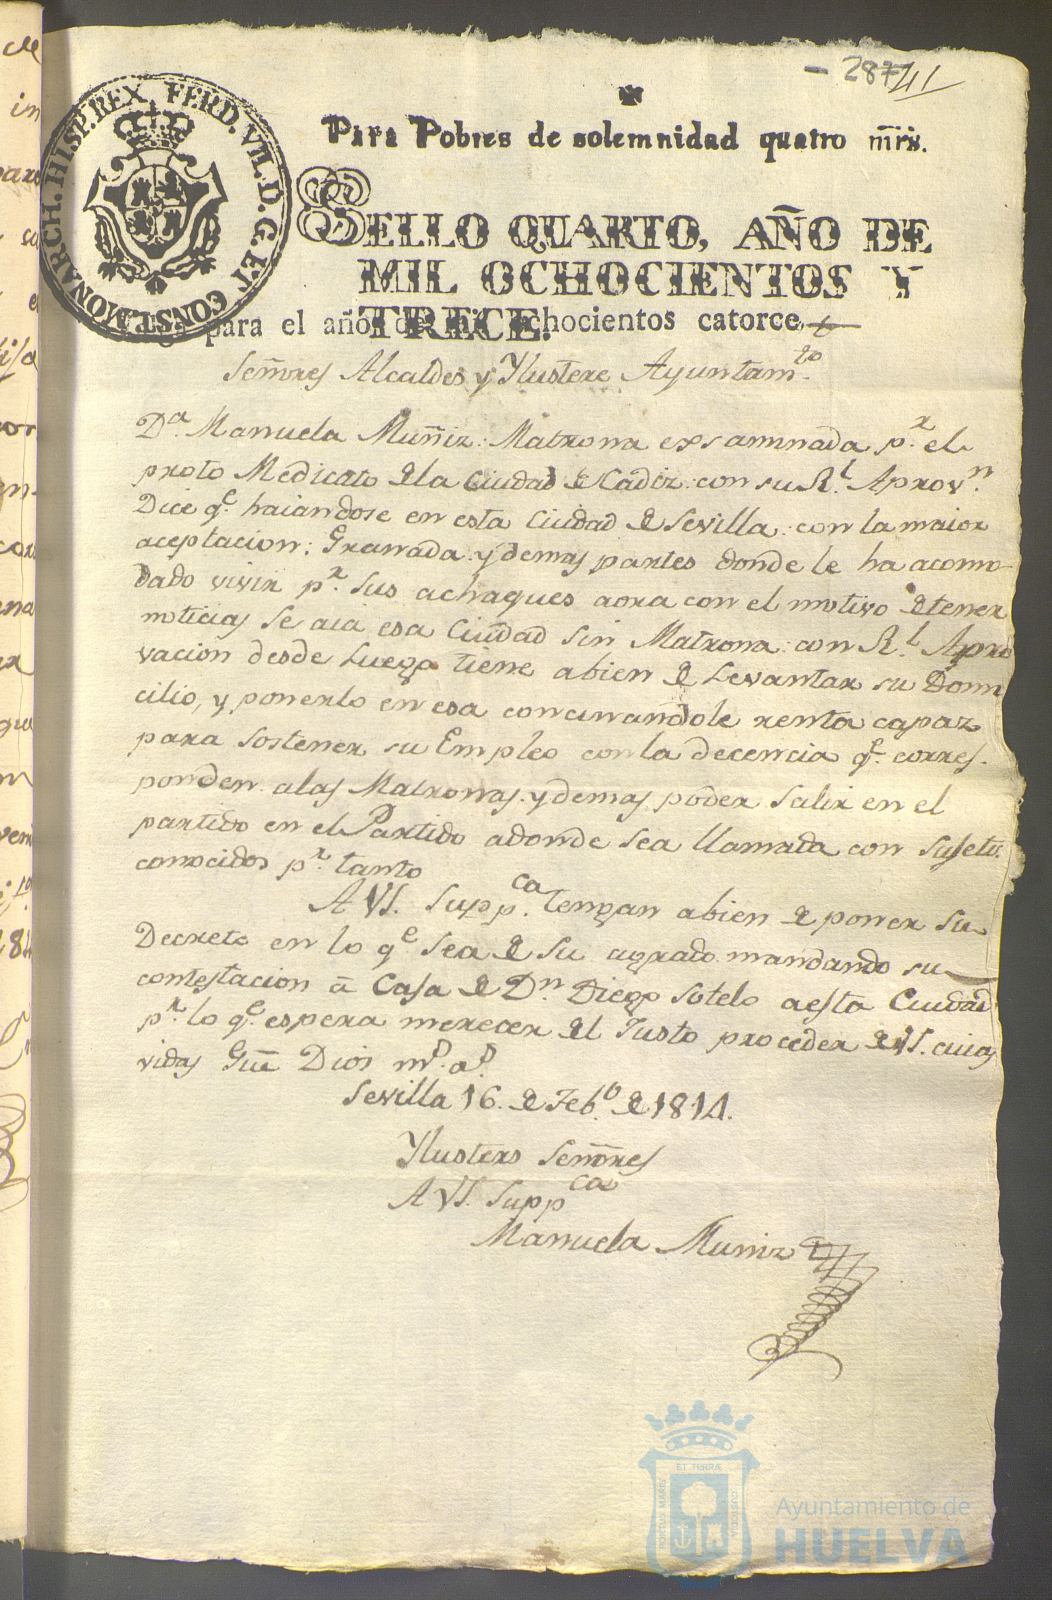 - 287 41
Para Pobres de solemnidad quatro mrs.
FERD. VII. D. G. ET CONST. MONARCH. HISP. REX
SELLO QUARTO, AÑO DE
MIL OCHOCIENTOS Y
TRECE.
para el año de mil ochocientos catorce
Señores Alcaldes y Ylustere Ayuntam.to
D.a Manuela Muñiz: Matrona exsaminada p.r el
proto Medicato de la Ciudad de Cadiz: con su R.l Aprov.n
Dice q.e haiandose en esta Ciudad de Sevilla: con la maior
aceptacion: Granada: y demas partes donde le ha acomo-
dado vivir p.r sus achaques aora con el motivo de tener
noticias se aia esa Ciudad sin Matrona: con R.l Apro
vacion desde Luego tiene abien de Levantar su Domi
cilio, y ponerlo en esa concinandole renta capaz
para sostener su Empleo con la decencia q.e corres-
ponden a las Matronas. y demas poder Salir en el
partido en el Partido adonde sea llamada con Sujeto.
conocidos p.r tanto
A VS. Supp.ca tengan abien de poner su
Decreto en lo q.e sea de su agrado mandando su
contestacion a Casa de D.n Diego Sotelo aesta Ciudad
p.r lo q.e espera merecer del Justo proceder de VS. cuias
vidas Gue Dios m.s a.s
Sevilla 16. de Feb.o de 1814.
Ylusters Señores
A VS. Supp.ca
Manuela Muniz
PORTUS MARIS
ET TERRÆ
CUSTODIA
Ayuntamiento de
HUELVA